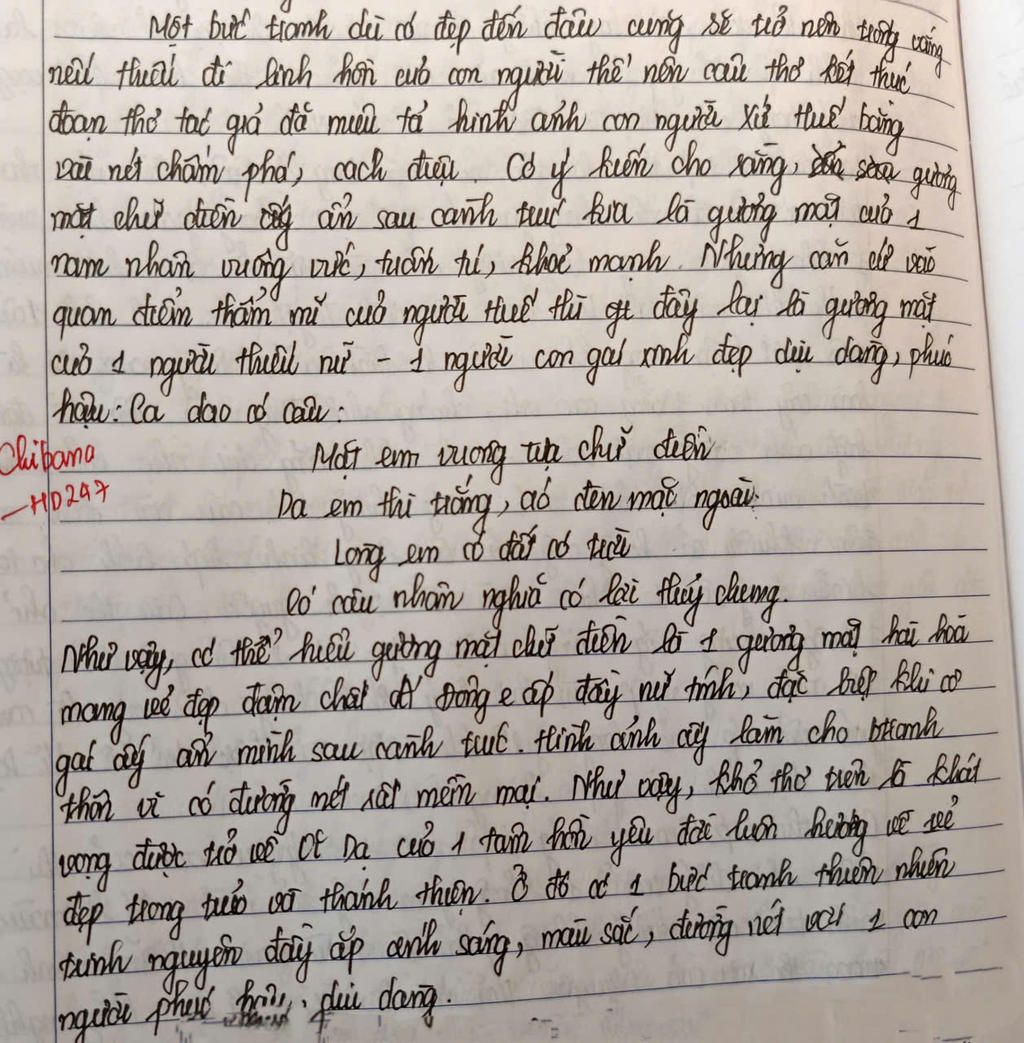 Một bức tranh dù có đẹp đến đâu cũng sẽ trở nên trống vắng
nếu thiếu đi linh hồn của con người thế nên câu thơ kết thúc
đoạn thơ tác giả đã miêu tả hình ảnh con người xứ Huế bằng
vài nét chấm phá, cách điệu. Có ý kiến cho rằng, gương
mặt chữ điền ẩn sau cành trúc kia là gương mặt của 1
nam nhân vuông vức, tuấn tú, khoẻ mạnh. Nhưng căn cứ vào
quan điểm thẩm mĩ của người Huế thì đây lại là gương mặt
của 1 người thiếu nữ - 1 người con gái xinh đẹp dịu dàng, phúc
hậu: Ca dao có câu:
Chibana
Mặt em vuông tựa chữ điền
-HD247
Da em thì trắng, áo đen mặc ngoài.
Lòng em có đất có trời
Có câu nhân nghĩa có lời thuỷ chung.
Như vậy, có thể hiểu gương mặt chữ điền là 1 gương mặt hài hoà
mang vẻ đẹp đậm chất Á Đông e ấp đầy nữ tính, đặc biệt khi cô
gái ấy ẩn mình sau cành trúc. Hình ảnh ấy làm cho btranh
thôn vĩ có đường nét rất mềm mại. Như vậy, khổ thơ trên là khát
vọng được trở về của 1 tâm hồn yêu đời luôn hướng về vẻ
đẹp trong trẻo và thánh thiện. Ở đó có 1 bức tranh thiên nhiên
trinh nguyên đầy ắp ánh sáng, màu sắc, đường nét với 1 con
người phúc hậu, dịu dàng.